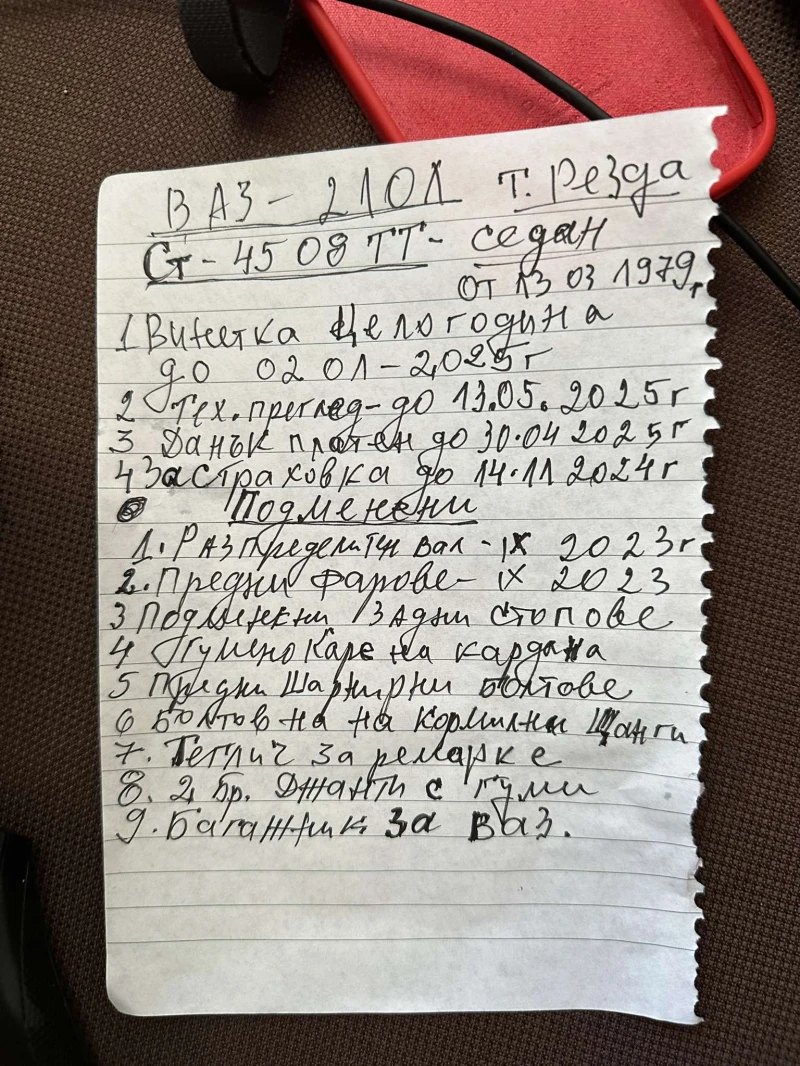 ВАЗ - 2101 Т. Резда
СТ - 45 08 ТТ - седан
от 13 03 1979г
1 Винетка Целогодина
до 02 01 - 2025г
2 Тех. преглед - до 13.05. 2025г
3 Данък платен до 30.04 2025г
4 Застраховка до 14.11 2024г
Подменени
1. Разпределитен вал - IX 2023г
2. Предни фарове - IX 2023
3 Подменени задни стопове
4 Гумено Каре на кардана
5 Предни Шарнирни болтове
6 Болтов на на кормилни щанги
7. Теглич за ремарке
8. 2 бр. Джанти с гуми
9. Багажник за Ваз.